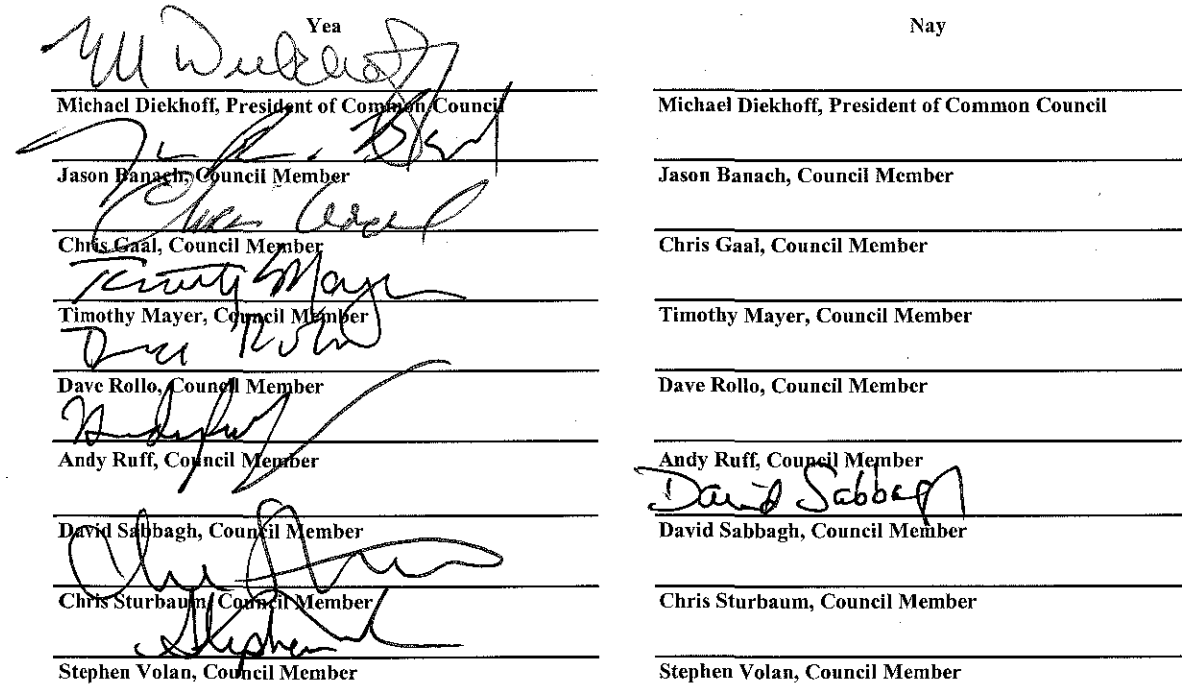 Yea
M Diekhoff
Michael Diekhoff, President of Common Council
Jason Banach, Council Member
Chris Gaal
Chris Gaal, Council Member
Timothy Mayer
Timothy Mayer, Council Member
Dave Rollo
Dave Rollo, Council Member
Andy Ruff
Andy Ruff, Council Member
David Sabbagh, Council Member
Chris Sturbaum, Council Member
Stephen
Stephen Volan, Council Member
Nay
Michael Diekhoff, President of Common Council
Jason Banach, Council Member
Chris Gaal, Council Member
Timothy Mayer, Council Member
Dave Rollo, Council Member
Andy Ruff, Council Member
David Sabbagh
David Sabbagh, Council Member
Chris Sturbaum, Council Member
Stephen Volan, Council Member